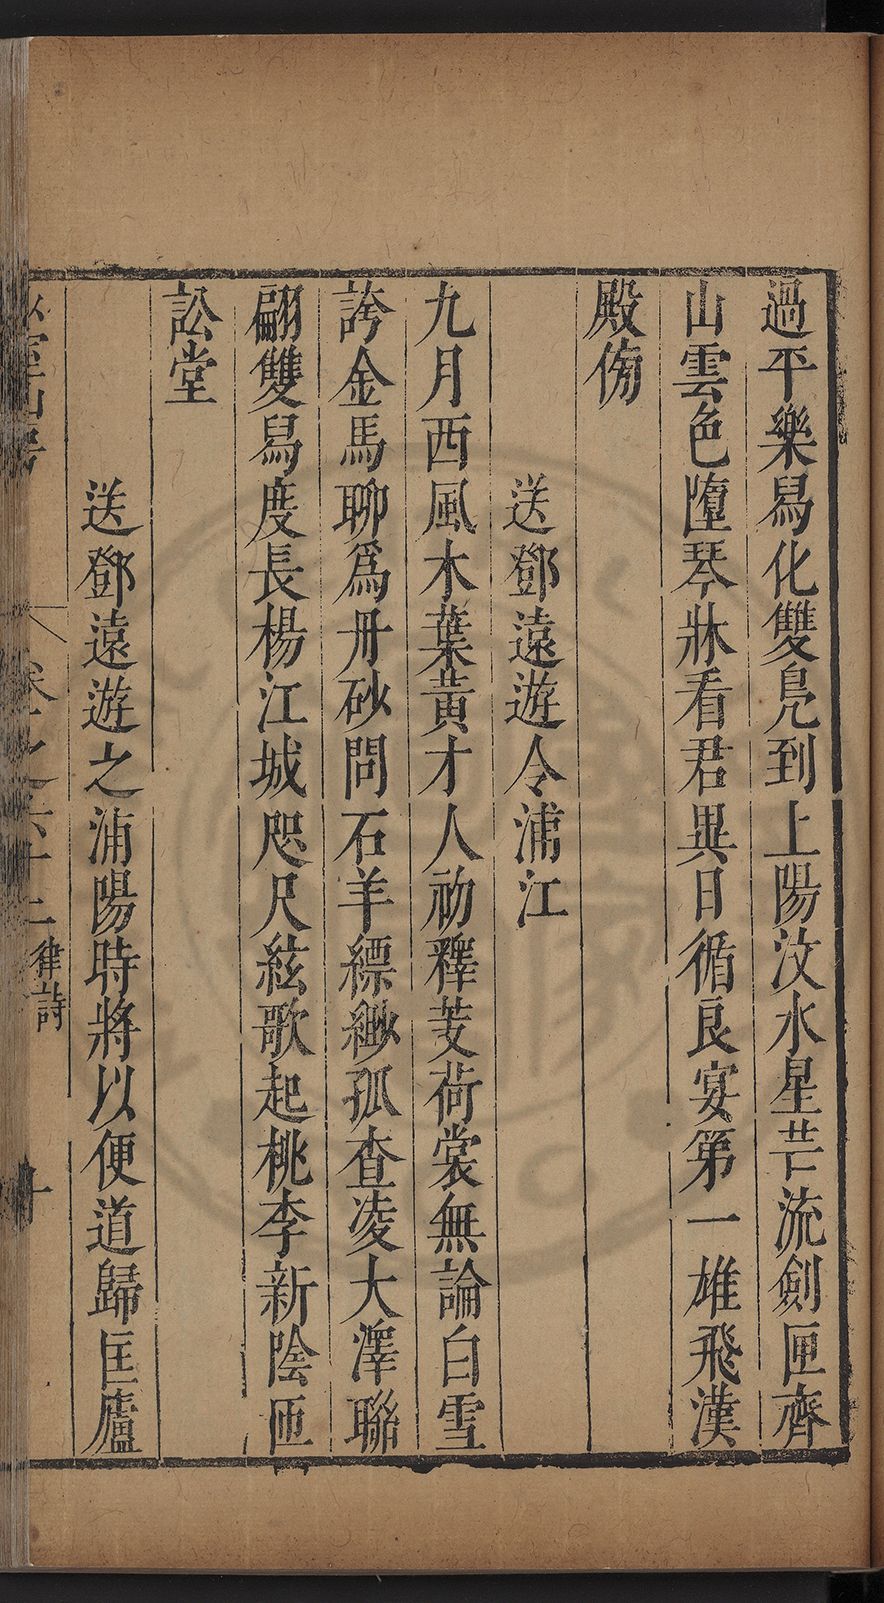 過平樂舄化雙鳧到上陽汶水星芒流劍匣齊
山雲色墮琴牀看君異日循良宴第一雄飛漢
殿傍
送鄧遠遊令浦江
九月西風木葉黃才人初釋芰荷裳無論白雪
誇金馬聊爲丹砂問石羊縹緲孤查凌大澤聯
翩雙舄度長楊江城咫尺絃歌起桃李新陰匝
訟堂
送鄧遠遊之浦陽時將以便道歸匡廬
卷之六十二 律詩 十